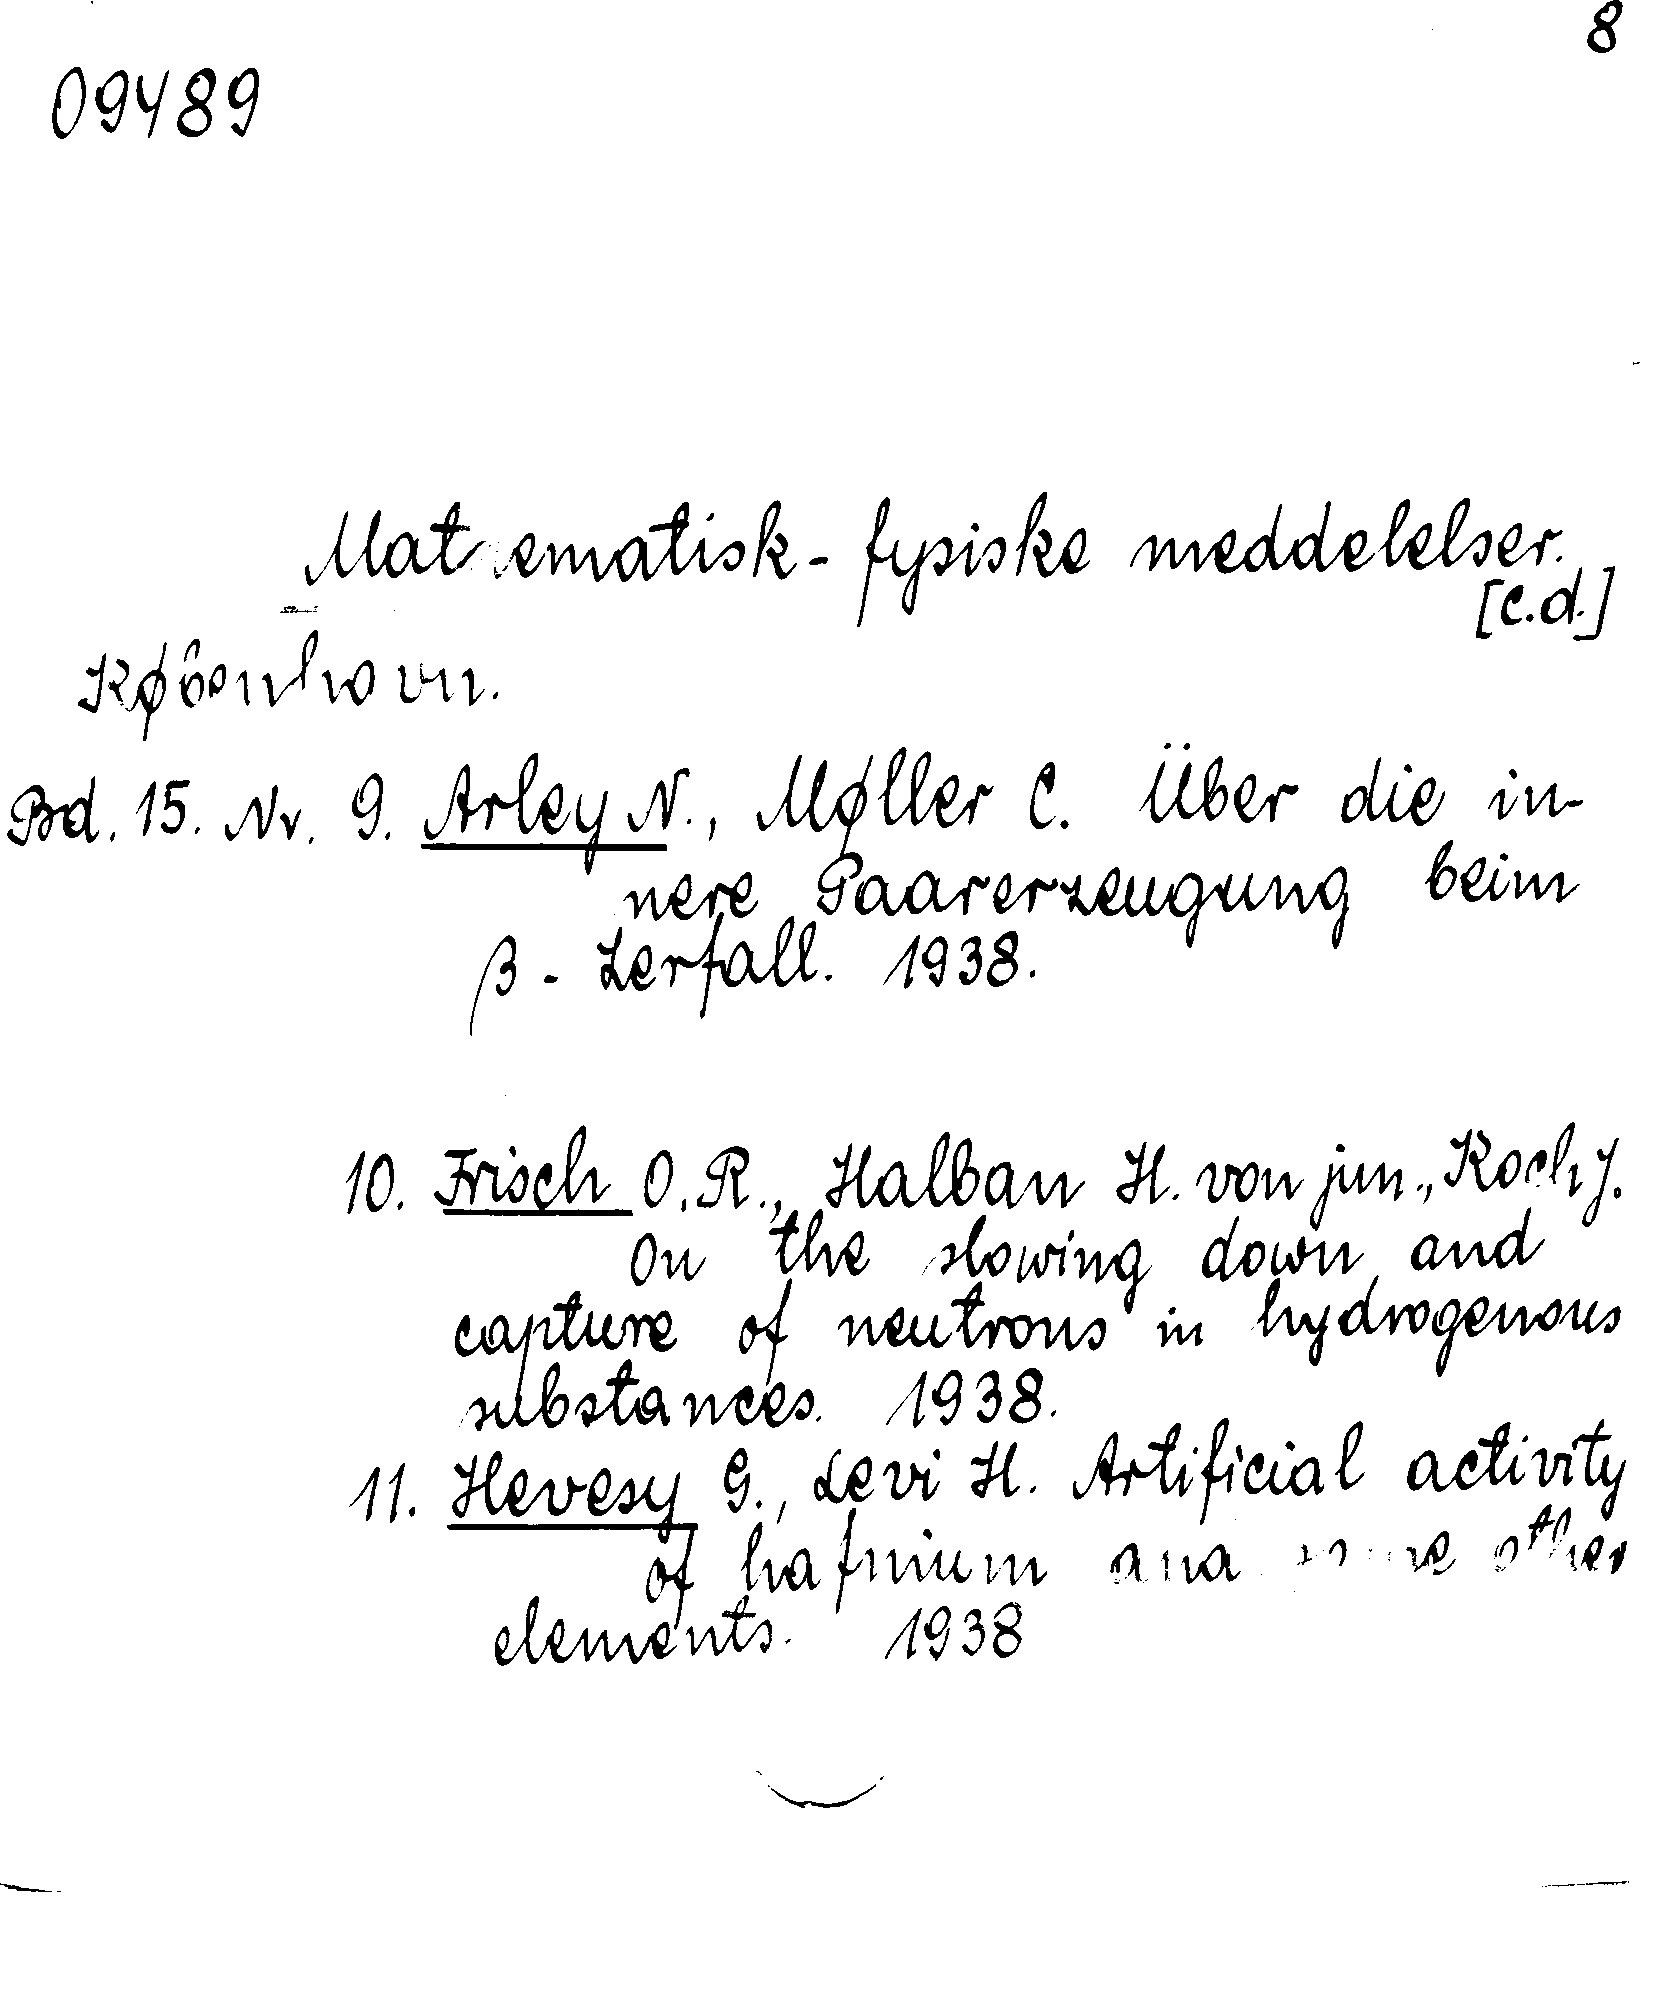 8
09489
Mathematisk-fysiske meddelelser.
[c.d.]
København.
Bd. 15. Nr. 9. Arley N., Møller C. Über die in-
nere Paarerzeugung beim
β-Zerfall. 1938.
10. Frisch O.R., Halban H. von jun., Koch J.
On the slowing down and
capture of neutrons in hydrogenous
substances. 1938.
11. Hevesy G., Levi H. Artificial activity
of hafnium and some other
elements. 1938